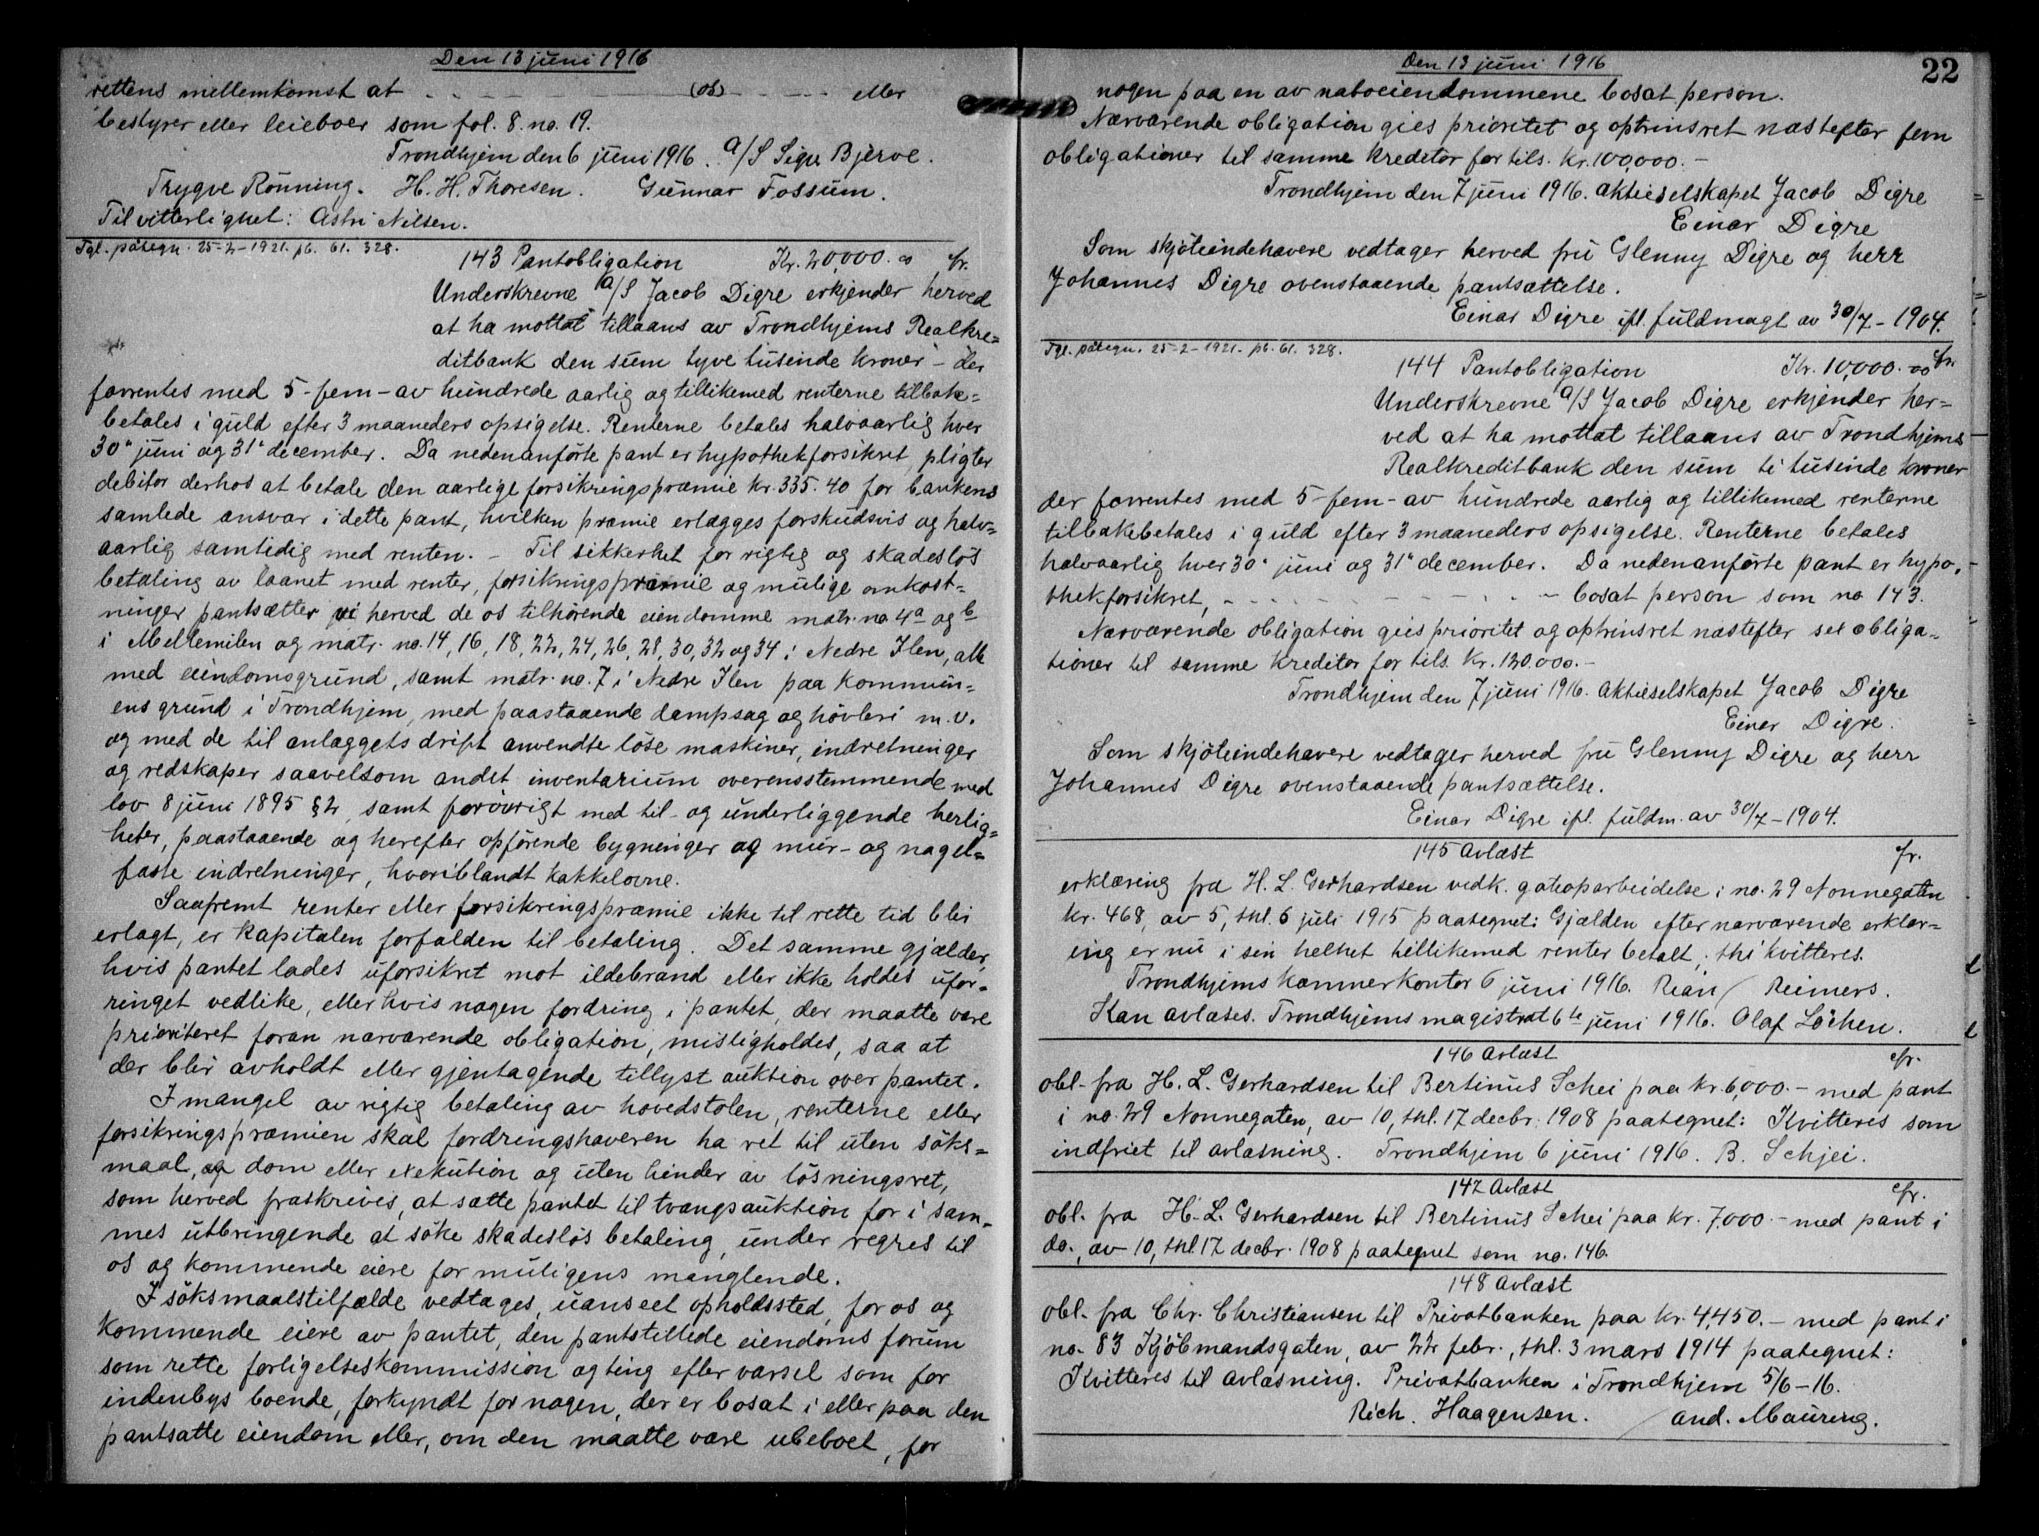 Den 13 juni 1916
rettens mellemkomst at - - - (os) - - - eller
bestyrer eller leieboer som fol. 8. no. 19.
Trondhjem den 6 juni 1916. A/S Bjerve.
Trygve Rönning. H. H. Thoresen. Gunnar Fossum.
Til vitterlighet: Astri Nilsen.
Tgl. påtegn. 25-2-1921. pb. 61. 328.
143 Pantobligation Kr. 20,000.00 fr.
Underskrevne A/S Jacob Digre erkjender herved
at ha mottat tillaans av Trondhjems Realkre=
ditbank den sum tyve tusende kroner - der
forrentes med 5 - fem - av hundrede aarlig og tillikemed renterne tilbake=
betales i guld efter 3 maaneders opsigelse. Renterne betales halvaarlig hver
30" juni og 31" december. Da nedenanförte pant er hypothekforsikret, pligter
debitor derhos at betale den aarlige forsikringspræmie kr. 335.40 for bankens
samlede ansvar i dette pant, hvilken præmie erlægges forskudsvis og halv=
aarlig samtidig med renten. - Til sikkerhet for rigtig og skadeslös
betaling av laanet med renter, forsikringspræmie og mulige omkost=
ninger pantsætter vi herved de os tilhörende eiendomme matr. no. 4a og b
i Mellemilen og matr. no. 14, 16, 18, 22, 24, 26, 28, 30, 32 og 34 i Nedre Ilen, alle
med eiendomsgrund, samt matr. no. 7 i Nedre Ilen paa kommun=
ens grund i Trondhjem, med paastaaende dampsag og hövleri m.v.
og med de til anlæggets drift anvendte löse maskiner, indretninger
og redskaper saavelsom andet inventarium overensstemmende med
lov 8 juni 1895 § 2, samt forövrigt med til- og underliggende herlig=
heter, paastaaende og herefter opförende bygninger og mur- og nagel=
faste indretninger, hvoriblandt kakkelovne.
Saafremt renter eller forsikringspræmie ikke til rette tid blir
erlagt, er kapitalen forfalden til betaling. Det samme gjælder,
hvis pantet lades uforsikret mot ildebrand eller ikke holdes ufor=
ringet vedlike, eller hvis nogen fordring i pantet, der maatte være
prioriteret foran nærværende obligation, misligholdes, saa at
der blir avholdt eller gjentagende tillyst auktion over pantet.
I mangel av rigtig betaling av hovedstolen, renterne eller
forsikringspræmien skal fordringshaveren ha ret til uten söks=
maal, og dom eller exekution og uten hinder av lösningsret,
som herved fraskrives, at sætte pantet til tvangsauktion for i sam=
mes utbringende at söke skadeslös betaling, under regres til
os og kommende eiere for muligens manglende.
I söksmaalstilfælde vedtages, uanseet opholdssted, for os og
kommende eiere av pantet, den pantstillede eiendoms forum
som rette forligelseskommission og ting efter varsel som for
indenbys boende, forkyndt for nogen, der er bosat i eller paa den
pantsatte eiendom eller, om den maatte være ubeboet, for
Den 13 juni 1916
22
nogen paa en av naboeiendommene bosat person.
Nærværende obligation gies prioritet og optrinsret næstefter fem
obligationer til samme kreditor for tils. Kr. 100,000.-
Trondhjem den 7 juni 1916. Aktieselskapet Jacob Digre
Einar Digre
Som skjöteindehavere vedtager herved fru Glenny Digre og herr
Johannes Digre ovenstaaende pantsættelse.
Einar Digre ifl. fuldmagt av 30/7 - 1904.
Tgl. påtegn. 25-2-1921. pb. 61. 328.
144 Pantobligation Kr. 10,000.00 fr.
Underskrevne A/S Jacob Digre erkjender her=
ved at ha mottat tillaans av Trondhjems
Realkreditbank den sum ti tusende kroner
der forrentes med 5 - fem - av hundrede aarlig og tillikemed renterne
tilbakebetales i guld efter 3 maaneders opsigelse. Renterne betales
halvaarlig hver 30" juni og 31" december. Da nedenanförte pant er hypo=
thekforsikret, - - - - - - bosat person som no 143.
Nærværende obligation gies prioritet og optrinsret næstefter sex obliga=
tioner til samme kreditor for tils. Kr. 120.000.-
Trondhjem den 7 juni 1916. Aktieselskapet Jacob Digre
Einar Digre.
Som skjöteindehavere vedtager herved fru Glenny Digre og herr
Johannes Digre ovenstaaende pantsættelse.
Einar Digre ifl. fuldm. av 30/7 - 1904.
145 Avlæst fr.
erklæring fra H. L. Gerhardsen vedk. gateoparbeidelse i no. 29 Nonnegaten
kr. 468, av 5, thl. 6 juli 1915 paategnet: Gjælden efter nærværende erklær=
ing er nu i sin helhet tillikemed renter betalt, thi kvitteres.
Trondhjems kæmnerkontor 6 juni 1916. Rian / Reimers.
Kan avlæses. Trondhjems magistrat 6te juni 1916. Olaf Löchen.
146 Avlæst fr.
obl. fra H. L. Gerhardsen til Bertinus Schei paa kr. 6,000.- med pant
i no. 29 Nonnegaten, av 10, thl. 17 decbr. 1908 paategnet: Kvitteres som
indfriet til avlæsning. Trondhjem 6 juni 1916. B. Schjei.
147 Avlæst fr.
obl. fra H. L. Gerhardsen til Bertinus Schei paa kr. 7,000.- med pant i
do., av 10, thl 17 decbr. 1908 paategnet som no. 146.
148 Avlæst
obl. fra Chr. Christiansen til Privatbanken paa kr. 4,450.- med pant i
no. 83 Kjöbmandsgaten, av 22 febr., thl. 3 mars 1914 paategnet:
Kvitteres til avlæsning. Privatbanken i Trondhjem 5/6-16.
Rich. Haagensen. / And. Mauring.